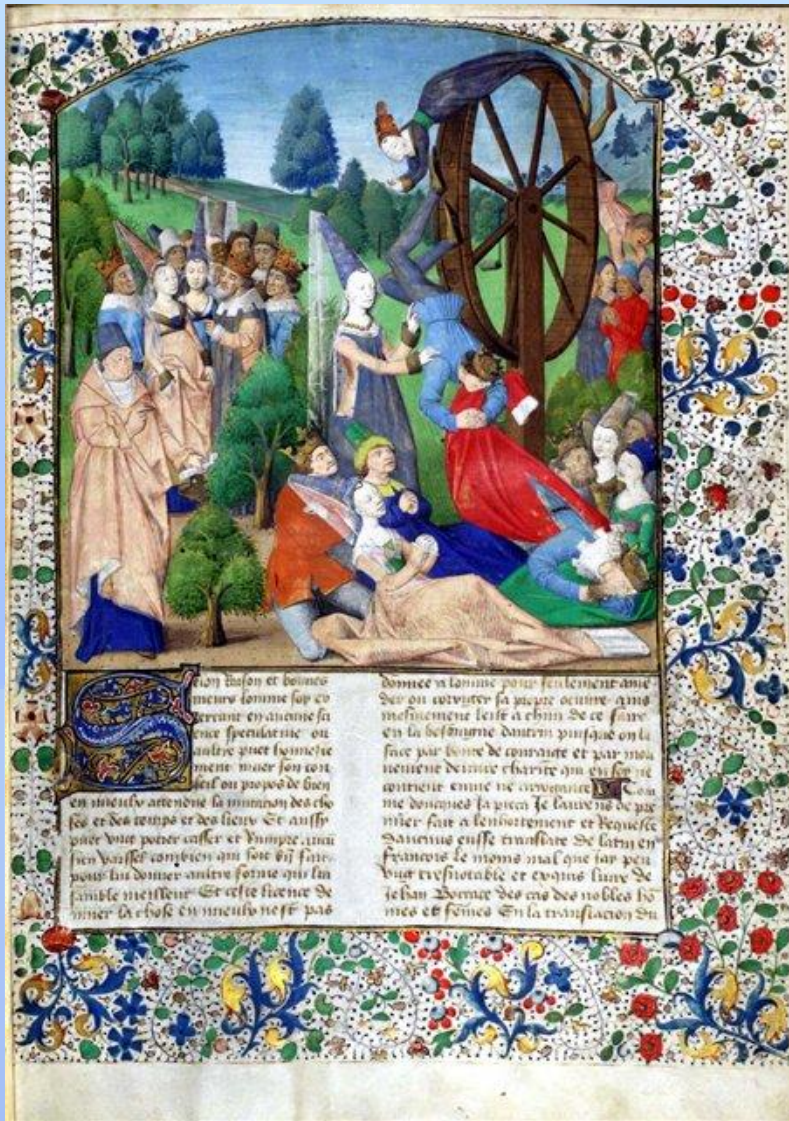 Selon Raison et bonnes
meurs lomme soy ex
ercant en aucune sci
ence speculative ou
aultre puet honneste
ment muer son con
seil ou propos de bien
en mieulx attendue la mutacion des cho
ses et des temps et des lieux Et aussy
puet ung potier casser et Rumpre aucun
sien vaissel combien quil soit bien fait
pour lui donner aultre forme qui lui
samble meilleur Et ceste licence de
muer la chose en mieulx nest pas
donnee a lomme pour seulement amen
der ou corriger sa propre oeuvre mais
mesmement leist a chun de ce faire
en la besoingne dautrui puisque on le
face par bonte de courage et par mou
uement de vraie charite qui en soy ne
contient enuie ne arrogance Com
me doncques Ja pieca Je laurens de pre
mier fait a lenhortement et Requeste
daucuns eusse translate de latin en
francois le moins mal que jay peu
ung tresnotable et exquis liure de
Jehan Boccace des cas des nobles ho
mes et femes En la translacion du